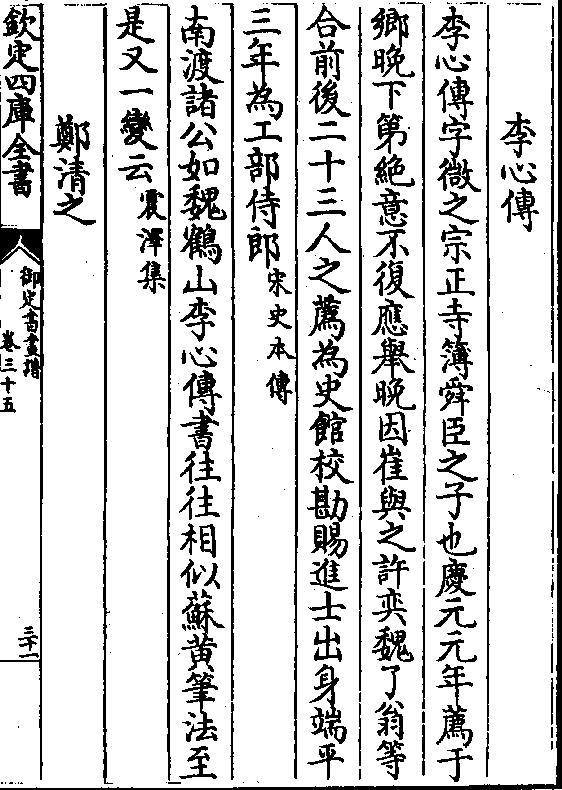 李心傳
李心傳字微之宗正寺簿舜臣之子也慶元元年薦于
鄉晚下第絕意不復應舉晚因崔與之許奕魏了翁等
合前後二十三人之薦為史館校勘賜進士出身端平
三年為工部侍郎宋史本傳
南渡諸公如魏鶴山李心傳書往往相似蘇黃筆法至
是又一變云震澤集
鄭清之
欽定四庫全書
御定書畫譜
卷三十五
三十一